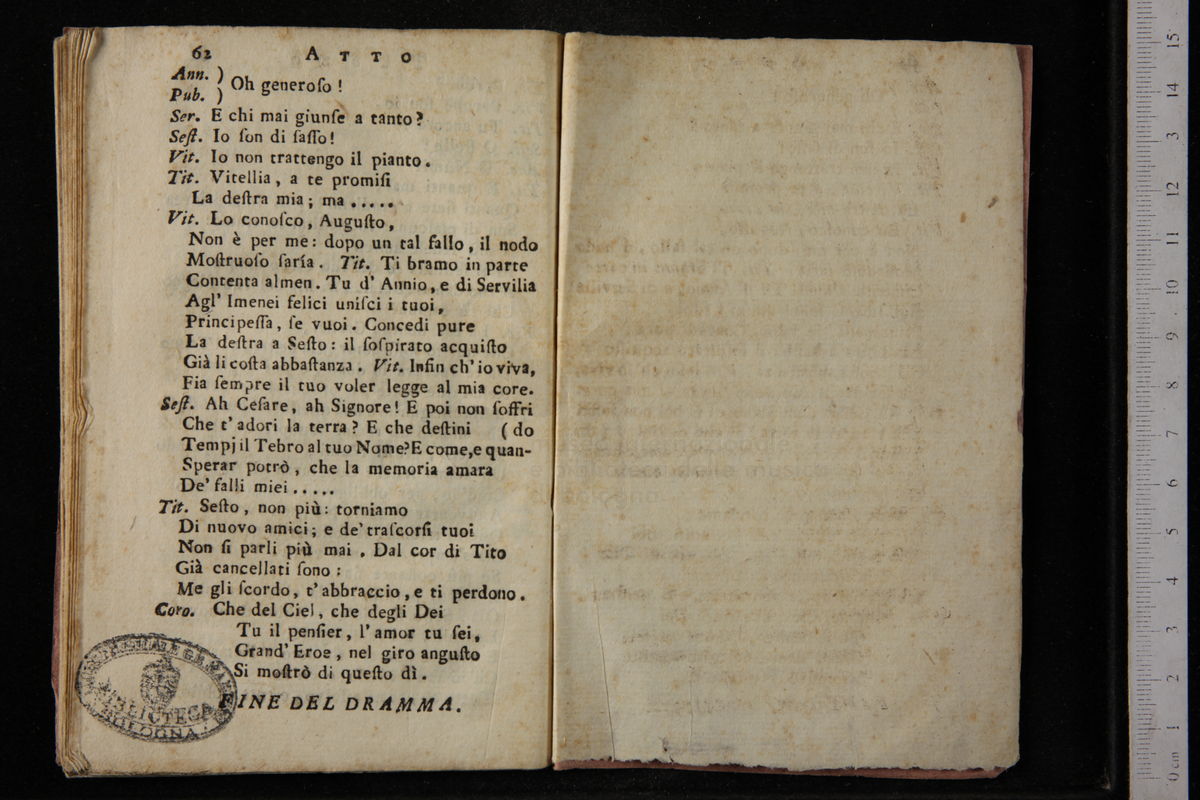 62 ATTO
Ann. )
Pub. ) Oh generoſo !
Ser. E chi mai giunſe a tanto?
Seſt. Io ſon di ſaſſo!
Vit. Io non trattengo il pianto.
Tit. Vitellia, a te promiſi
La deſtra mia; ma .....
Vit. Lo conoſco, Auguſto,
Non è per me: dopo un tal fallo, il nodo
Moſtruoſo ſaría. Tit. Ti bramo in parte
Contenta almen. Tu d' Annio, e di Servilia
Agl' Imenei felici uniſci i tuoi,
Principeſſa, ſe vuoi. Concedi pure
La deſtra a Seſto: il ſoſpirato acquiſto
Già li coſta abbaſtanza. Vit. Infin ch' io viva,
Fia ſempre il tuo voler legge al mia core.
Seſt. Ah Ceſare, ah Signore! E poi non ſoffri
Che t' adori la terra? E che deſtini (do
Tempj il Tebro al tuo Nome? E come, e quan-
Sperar potrò, che la memoria amara
De' falli miei .....
Tit. Seſto, non più: torniamo
Di nuovo amici; e de' traſcorſi tuoi
Non ſi parli più mai. Dal cor di Tito
Già cancellati ſono:
Me gli ſcordo, t' abbraccio, e ti perdono.
Coro. Che del Ciel, che degli Dei
Tu il penſier, l' amor tu ſei,
Grand' Eroe, nel giro anguſto
Si moſtrò di queſto dì.
FINE DEL DRAMMA.
BIBLIOTECA
BOLOGNA
0 cm 1 2 3 4 5 6 7 8 9 10 11 12 13 14 15